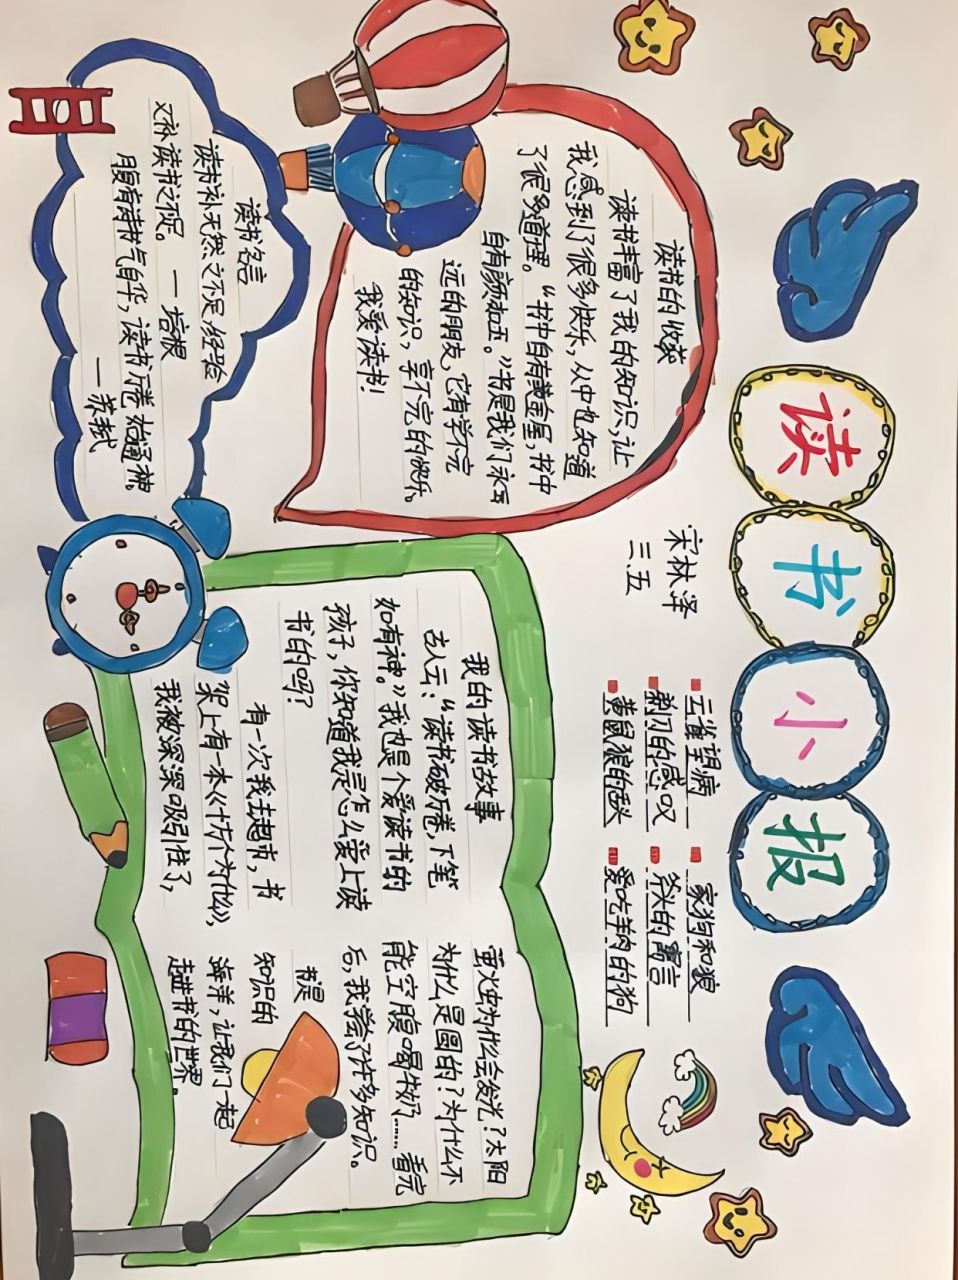 读书小报
宋林泽
三.五
云雀望病
剃刀的感叹
黄鼠狼的舌头
家狗和狼
斧头的寓言
爱吃羊肉的狗
读书的收获
读书丰富了我的知识,让
我感到了很多快乐,从中也知道
了很多道理。“书中自有黄金屋,书中
自有颜如玉。”书是我们永
远的朋友,它有学不完
的知识,享不完的快乐。
我爱读书!
读书名言
读书补天然之不足,经验
又补读书之不足。 — 培根
腹有诗书气自华,读书万卷始通神。
— 苏轼
我的读书故事
古人云:“读书破万卷,下笔
如有神。”我也是个爱读书的
孩子,你知道我是怎么爱上读
书的吗?
有一次我去超市,书
架上有一本《十万个为什么》,
我被深深吸引住了,
萤火虫为什么会发光?太阳
为什么是圆的?为什么不
能空腹喝牛奶……看完
后,我学会了许多知识。
书是
知识的
海洋,让我们一起
走进书的世界